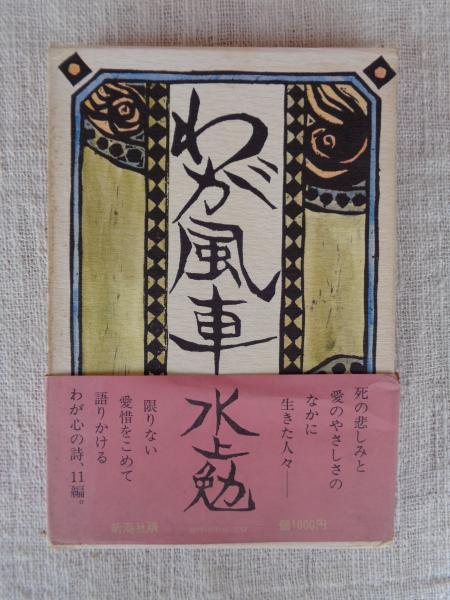 わが風車
水上勉
死の悲しみと
愛のやさしさの
なかに
生きた人々――
限りない
愛惜をこめて
語りかける
わが心の詩、11編。
新潮社版